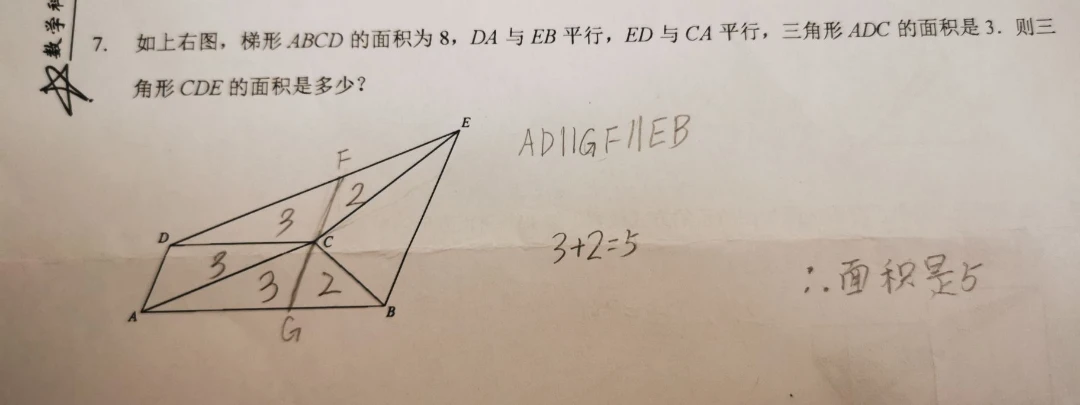 数学科
7. 如上右图，梯形 ABCD 的面积为 8，DA 与 EB 平行，ED 与 CA 平行，三角形 ADC 的面积是 3．则三
角形 CDE 的面积是多少？
E
AD||GF||EB
F
2
3
D
C
3+2=5
3
3
2
∴面积是5
A
B
G